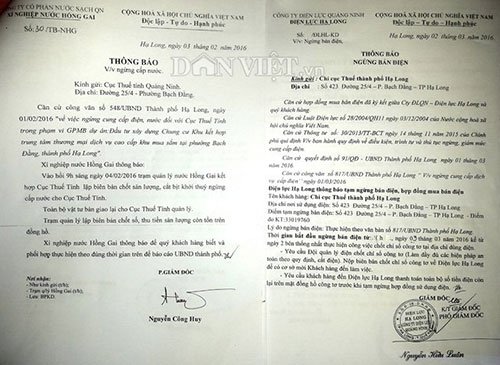 CÔNG TY CỔ PHẦN NƯỚC SẠCH QN
XÍ NGHIỆP NƯỚC HỒNG GAI
Số: 30/TB-NHG
CỘNG HOÀ XÃ HỘI CHỦ NGHĨA VIỆT NAM
Độc lập - Tự do - Hạnh phúc
Hạ Long, ngày 03 tháng 02 năm 2016
THÔNG BÁO
V/v ngừng cấp nước
Kính gửi: Cục Thuế tỉnh Quảng Ninh.
Địa chỉ: Đường 25/4 - Phường Bạch Đằng.
Căn cứ công văn số 548/UBND Thành phố Hạ Long, ngày
01/02/2016 "về việc ngừng cung cấp điện, nước đối với Cục Thuế Tỉnh
trong phạm vi GPMB dự án:Đầu tư xây dựng Chung cư Khu kết hợp
trung tâm thương mại dịch vụ cao cấp khu mua sắm tại phường Bạch
Đằng, thành phố Hạ Long"
Xí nghiệp nước Hồng Gai thông báo:
Vào hồi 9h sáng ngày 04/02/2016 trạm quản lý nước Hồng Gai kết
hợp Cục Thuế Tỉnh lập biên bản chốt sản lượng, cắt bịt khởi thuỷ ngừng
cấp nước cho Cục Thuế Tỉnh.
Toàn bộ vật tư bàn giao lại cho Cục Thuế Tỉnh quản lý.
Trạm quản lý lập biên bản chốt số, thu tiền sản lượng còn tồn trên
đồng hồ.
Xí nghiệp nước Hồng Gai thông báo để quý khách hàng biết và
phối hợp thực hiện theo đúng thời gian trên để báo cáo UBND thành phố.
Nơi nhận:
- Như kính gửi (t/h)
- Trạm q/lý Hồng Gai (t/h);
- Lưu: BPKD.
P.GIÁM ĐỐC
Nguyễn Công Huy
DÂN VIỆT.vn
CÔNG TY ĐIỆN LỰC QUẢNG NINH
ĐIỆN LỰC HẠ LONG
Số: /ĐLHL-KD
V/v: Ngừng bán điện.
CỘNG HOÀ XÃ HỘI CHỦ NGHĨA VIỆT NAM
Độc lập - Tự do - Hạnh phúc
Hạ Long, ngày 02 tháng 03 năm 2016
THÔNG BÁO
NGỪNG BÁN ĐIỆN
Kính gửi : Chi cục Thuế thành phố Hạ Long
Địa chỉ : Số 423 Đường 25/4 - P. Bạch Đằng - TP Hạ Long
Căn cứ hợp đồng mua bán điện đã ký kết giữa Cty ĐLQN – Điện lực Hạ Long và
quý khách hàng.
Căn cứ Luật Điện lực số 28/2004/QH11 ngày 03/12/2004 của Nước cộng hoà xã
hội chủ nghĩa Việt Nam.
Căn cứ Thông tư số 30/2013/TT-BCT ngày 14 tháng 11 năm 2013 của Chính
phủ quy định V/v ban hành quy định về điều kiện, trình tự và thủ tục ngừng, giảm mức
cung cấp điện.
Căn cứ quyết định số 91/QĐ - UBND Thành phố Hạ Long ngày 01 tháng 03
năm 2016.
Căn cứ công văn số 817/UBND Thành phố Hạ Long "V/v ngừng cung cấp
dịch vụ cấp điện" ngày 01/03/2016
Điện lực Hạ Long thông báo tạm ngừng bán điện, hợp đồng mua bán điện
Tên khách hàng: Chi cục Thuế thành phố Hạ Long
Địa chỉ nơi sử dụng điện: Số 423 Đường 25/4 - P. Bạch Đằng - TP Hạ Long
Điểm tạm ngừng bán điện: Số 423 Đường 25/4 - P. Bạch Đằng - TP Hạ Long – Điểm
đo KT:33019760
Lý do ngừng bán điện: Thực hiện theo văn bản số 817/UBND Thành phố Hạ Long
Thời gian bắt đầu ngừng bán điện từ 03 tháng 03 năm 2016 kể từ
ngày 2 bên thống nhất thực hiện công việc chốt chỉ số công tơ tại địa chỉ dùng điện.
- Yêu cầu Đội quản lý điện chốt chỉ số công tơ (Làm đầy đủ các biện pháp an
toàn theo quy định, cắt điện). Nộp biên bản chốt chỉ số công tơ về Điện lực Hạ Long
để có cơ sở mời Khách hàng đến làm việc.
- Yêu cầu khách hàng đến Điện lực Hạ Long thanh toán toàn bộ số tiền điện còn
lại trên mặt đồng hồ công tơ trước khi tạm ngừng hợp đồng sử dụng điện.
GIÁM ĐỐC
K/T GIÁM ĐỐC
PHÓ GIÁM ĐỐC
ĐIỆN LỰC
HẠ LONG
Nguyễn Hữu Luân